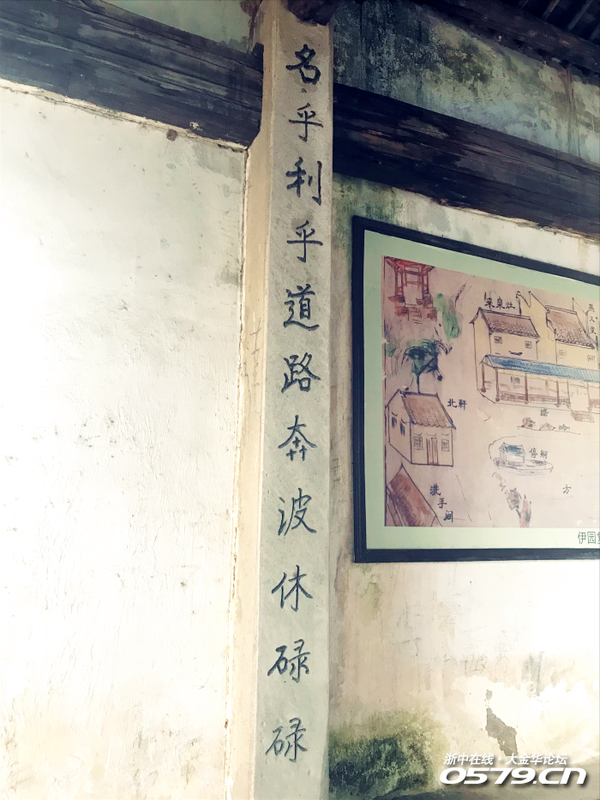 名乎利乎道路奔波休碌碌
北軒
洗手间
方
伊园
浙中在线·大金华论坛
0579.cn